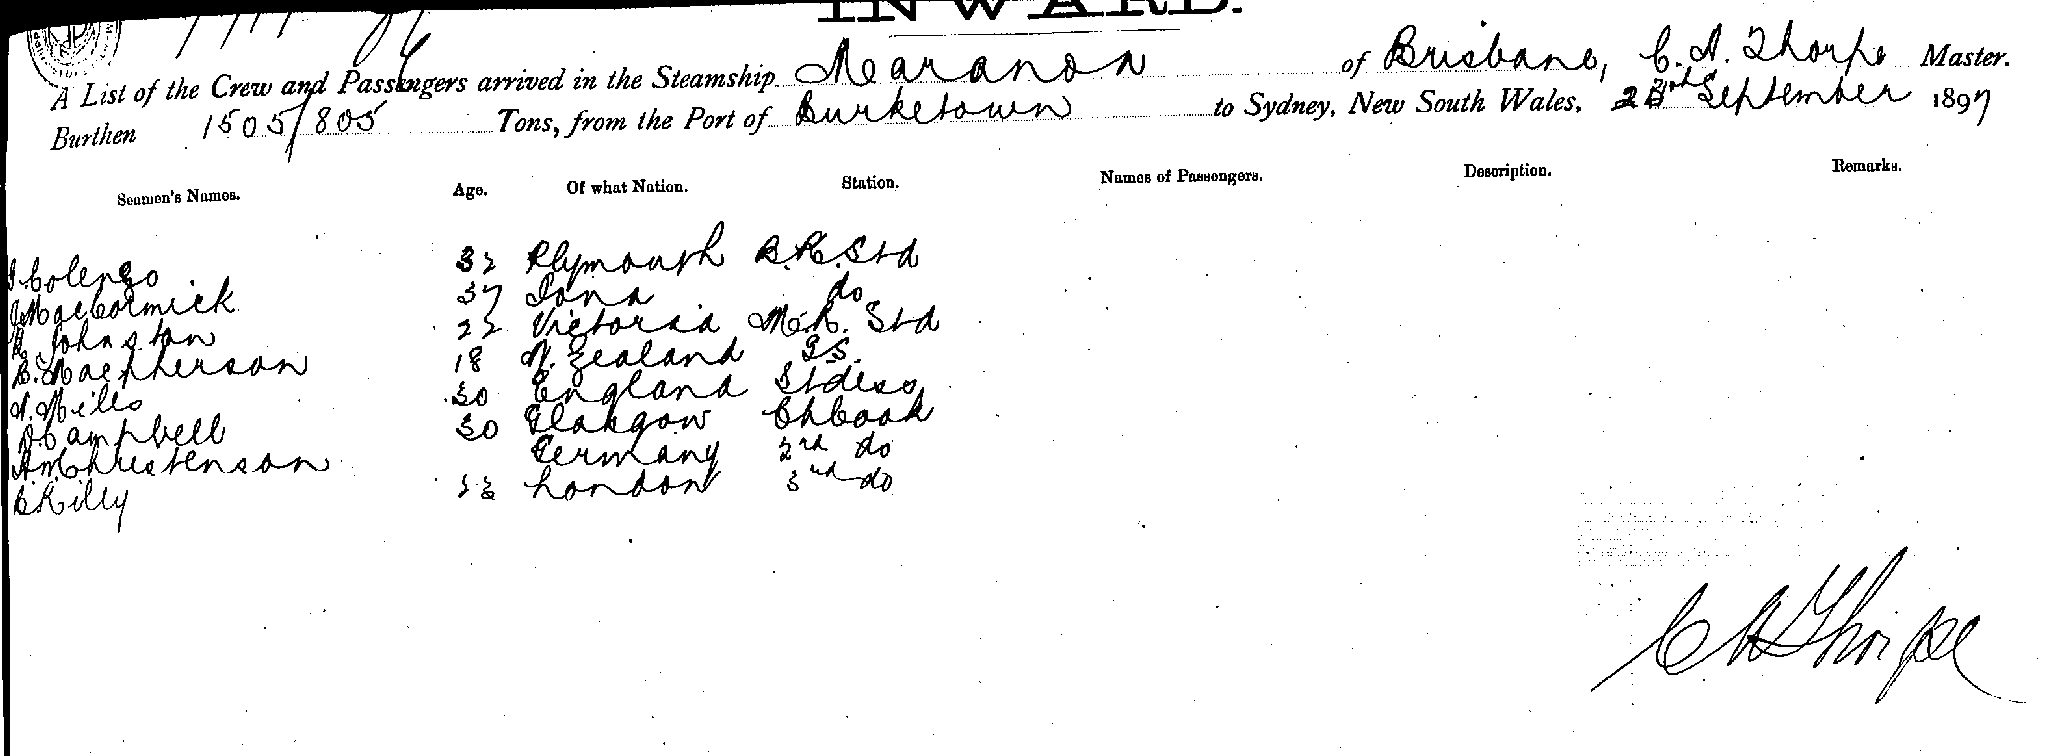 INWARD.
A List of the Crew and Passengers arrived in the Steamship Maranoa of Brisbane, C. A. Thorpe Master.
Burthen 1505/805 Tons, from the Port of Burketown to Sydney, New South Wales, 23rd September 1897
Seamen's Names. Age. Of what Nation. Station. Names of Passengers. Description. Remarks.
J. Colenso 32 Plymouth B.R. Std
MacCormick 37 Iona do
Johnston 22 Victoria M.R. Std
B. Macpherson 18 N. Zealand G.S.
A. Mills 30 England Stdess
D. Campbell 30 Glasgow Ch Cook
A. Mc Christenson Germany 2nd do
C Killy 23 London 3rd do
C A Thorpe